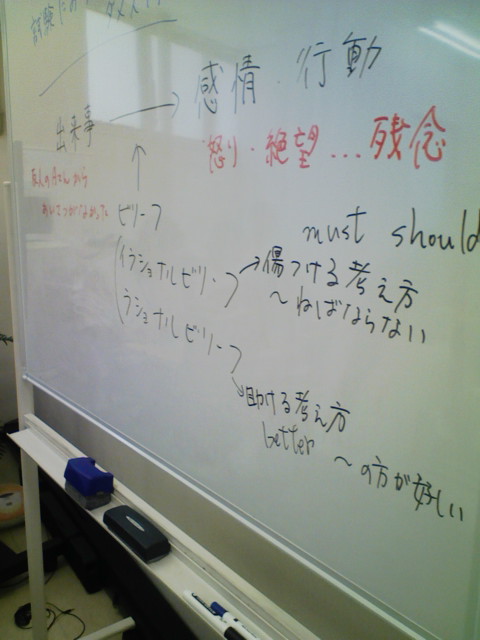 試験
感情・行動
出来事 →
怒り・絶望…残念
友人のAさんから
あいさつがなかった
ビリーフ
must should
イラショナルビリーフ
傷つける考え方
~ねばならない
ラショナルビリーフ
助ける考え方
better ~の方が好しい